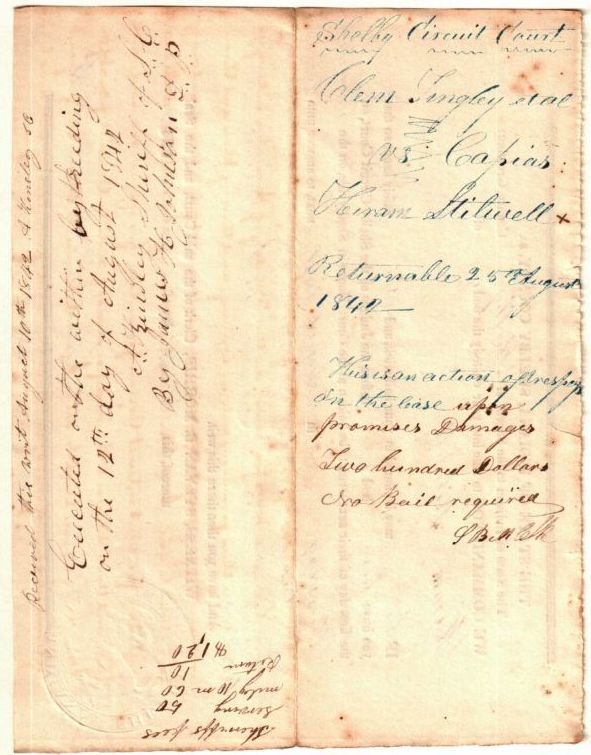 Shelby Circuit Court
Clem Tingley et al
vs Capias
Hiram Stilwell
Returnable 25th August
1842
This is an action of trespass
on the Case upon
promises Damages
Two hundred Dollars
No Bail required
S Bell Clk
Received this writ August 10th 1842 A Kinsley SC
Executed on the within by reeding
on the 12th day of August 1842
A Kinsley Sheriff of S. C.
By James H Johnson D S
Sheriffs fees
serving 50
milég 10 m 60
Return 10
$1,20